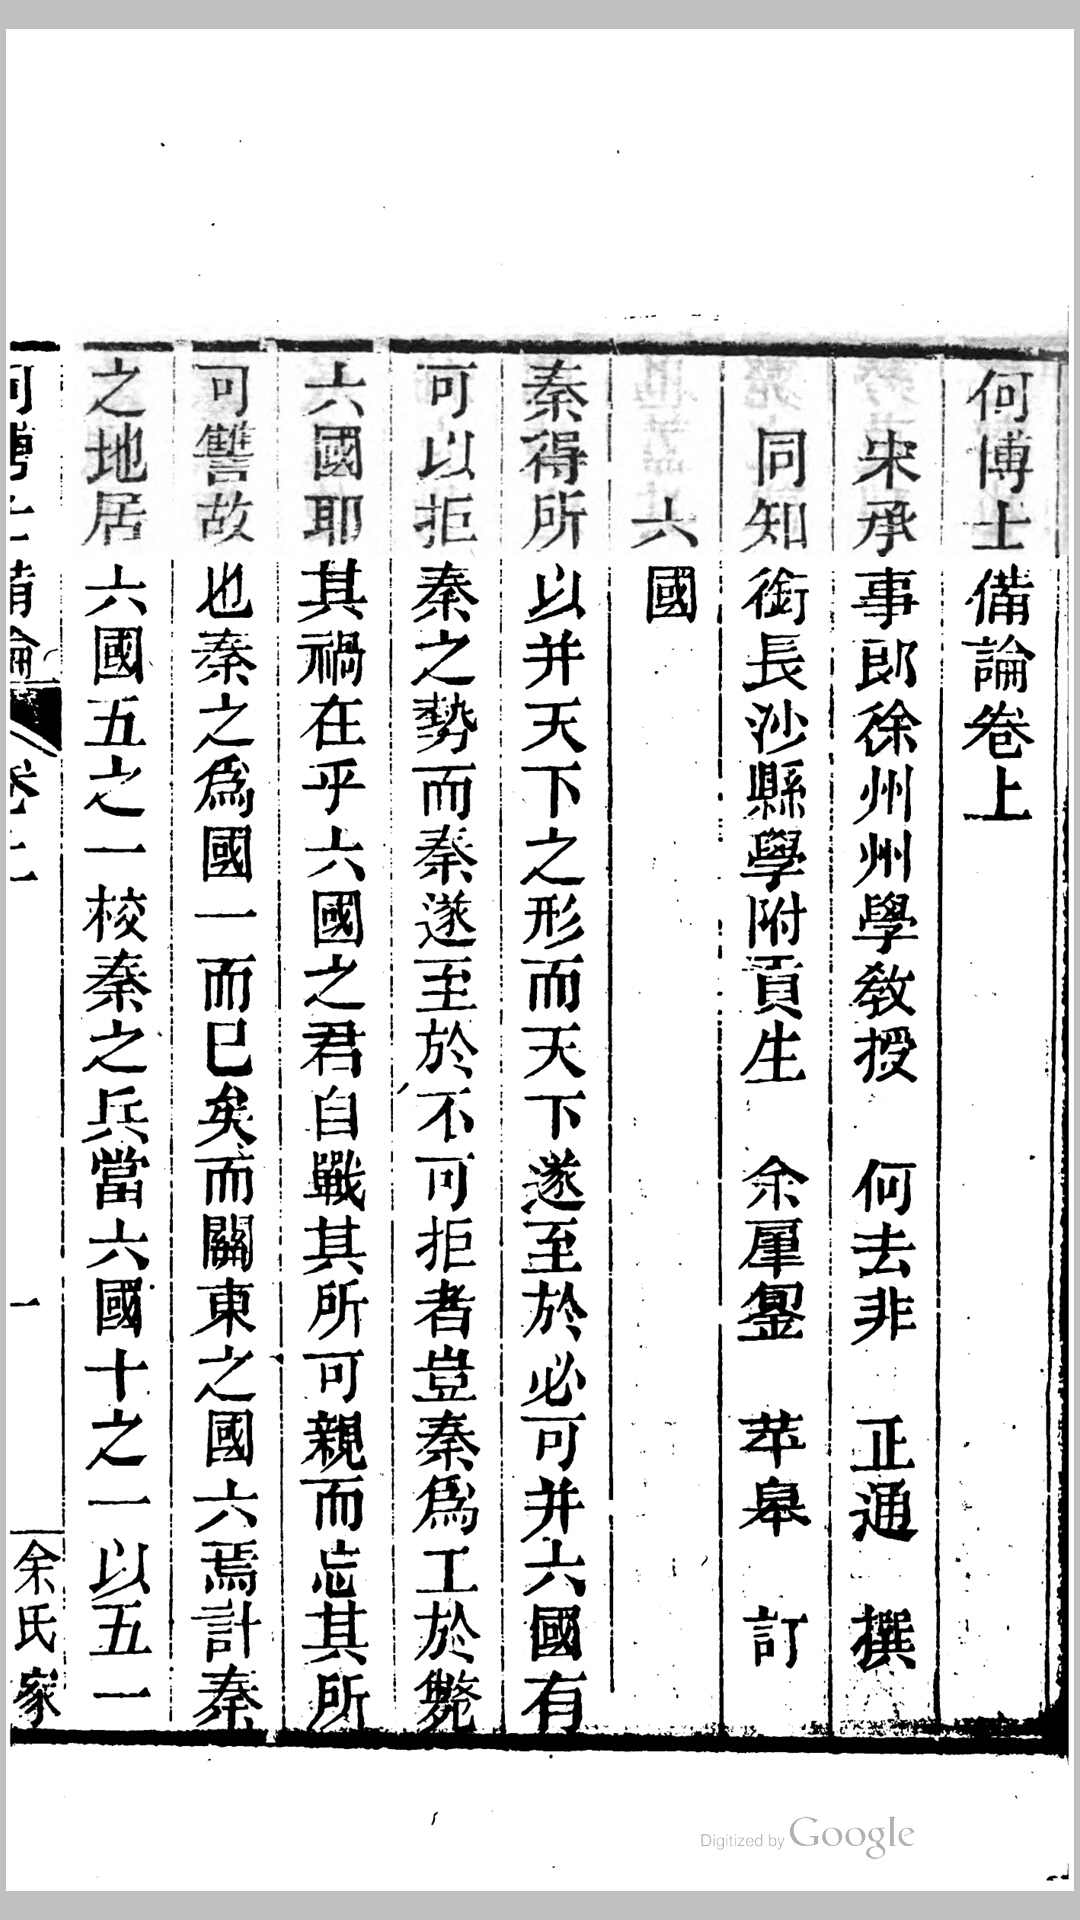 何博士備論卷上
宋承事郎徐州州學教授 何去非 正通 撰
同知銜長沙縣學附貢生 余肇鋆 苹皋 訂
六國
秦得所以并天下之形而天下遂至於必可并六國有
可以拒秦之勢而秦遂至於不可拒者豈秦爲工於斃
六國耶其禍在乎六國之君自戰其所可親而忘其所
可讐故也秦之爲國一而已矣而關東之國六焉計秦
之地居六國五之一校秦之兵當六國十之一以五一
何博士備論 卷上 一 余氏家
Digitized by Google